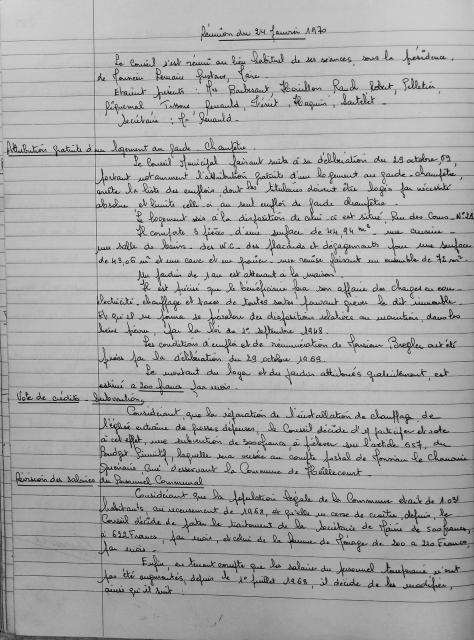 Réunion du 24 Janvier 1970
Le Conseil s'est réuni au lieu habituel de ses séances, sous la présidence
de Monsieur Lemaire Gustave, Maire.
Etaient présents : Mrs Barbesant, Haillon Raud, Robert, Pelletier,
Tissone, Renauld, Haquin, Sautelet.
Secrétaire : Mr Renauld.
Attribution gratuite d'un logement au garde-Champêtre.
Le Conseil Municipal faisant suite à sa délibération du 29 octobre 69
portant notamment l'attribution gratuite d'un logement au garde-champêtre,
arrête la liste des emplois, dont les titulaires doivent être logés par nécessité
absolue et limite celle-ci au seul emploi de garde champêtre.
Le logement mis à la disposition de celui-ci est situé, Rue des Cours N°28
Il comporte 3 pièces d'une surface de 44,94 m² une cuisine
une salle de bains. des W.C. des placards et dégagements pour une surface
de 43,06 m² et une cave et un grenier. une remise faisant un ensemble de 72 m².
Un jardin de 1 are est attenant à la maison.
Il est précisé que le bénéficiaire fera son affaire des charges en eau
électricité, chauffage et taxes de toutes sortes pouvant grever le dit immeuble.
Et qu'il ne pourra se prévaloir des dispositions relatives au maintien, dans les
lieux prévus, par la loi du 1er septembre 1948.
Les conditions d'emploi et de rémunération de Monsieur ont été
fixées par la délibération du 29 octobre 1969.
Le montant du loyer et du jardin attribués gratuitement, est
estimé à 200 francs par mois.
Vote de crédits - Subventions
Considérant que la réparation de l'installation de chauffage de
l'église entraîne de grosses dépenses, le Conseil décide d'y participer et vote
à cet effet, une subvention de 500 francs à prélever sur l'article 657, du
Budget Primitif, laquelle sera versée au compte postal de Monsieur le Chanoine
qui desservant la Commune de Heillecourt.
Révision des salaires du Personnel Communal
Considérant que la population légale de la Commune était de 1.031
habitants, au recensement de 1968, et qu'elle ne cesse de croître, depuis, le
Conseil décide de porter le traitement de la Secrétaire de Mairie de 500 francs,
à 622 Francs, par mois, et celui de la femme de Ménage de 200 à 210 Francs,
par mois.
Enfin, en tenant compte que les salaires du personnel temporaire n'ont
pas été augmentés, depuis le 1er juillet 1968, il décide de les modifier,
ainsi qu'il suit